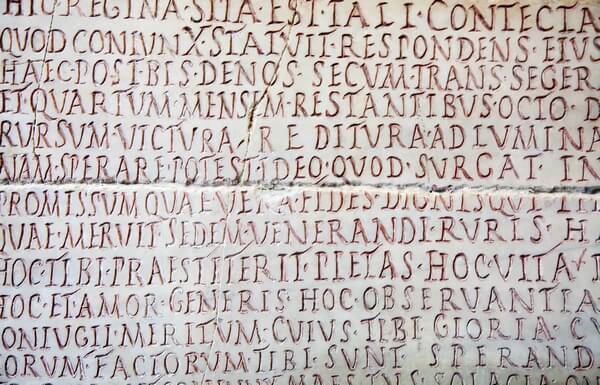 HIC·REGINA·SITA·EST·TALI·CONTECTA
QUOD CONIUNX·STATUIT·RESPONDENS·EIUS
HAEC·POST·BIS·DENOS·SECUM·TRANS·SEGER
ET·QUARTUM·MENSEM·RESTANTIBUS·OCTO·D
RURSUM·VICTURA·REDITURA·AD LUMINA
NAM·SPERARE·POTEST·IDEO·QUOD·SURGAT·IN
PROMISSUM·QUAE·VERA·FIDES·DIGNISQUE
QUAE·MERUIT·SEDEM·VENERANDI·RURIS·H
HOC·TIBI·PRAESTITERIT·PIETAS·HOC·VITA·P
HOC·ET·AMOR·GENERIS·HOC·OBSERVANTIA
CONIUGII·MERITUM·CUIUS·TIBI·GLORIA·CU
HORUM·FACTORUM·TIBI·SUNT·SPERAND